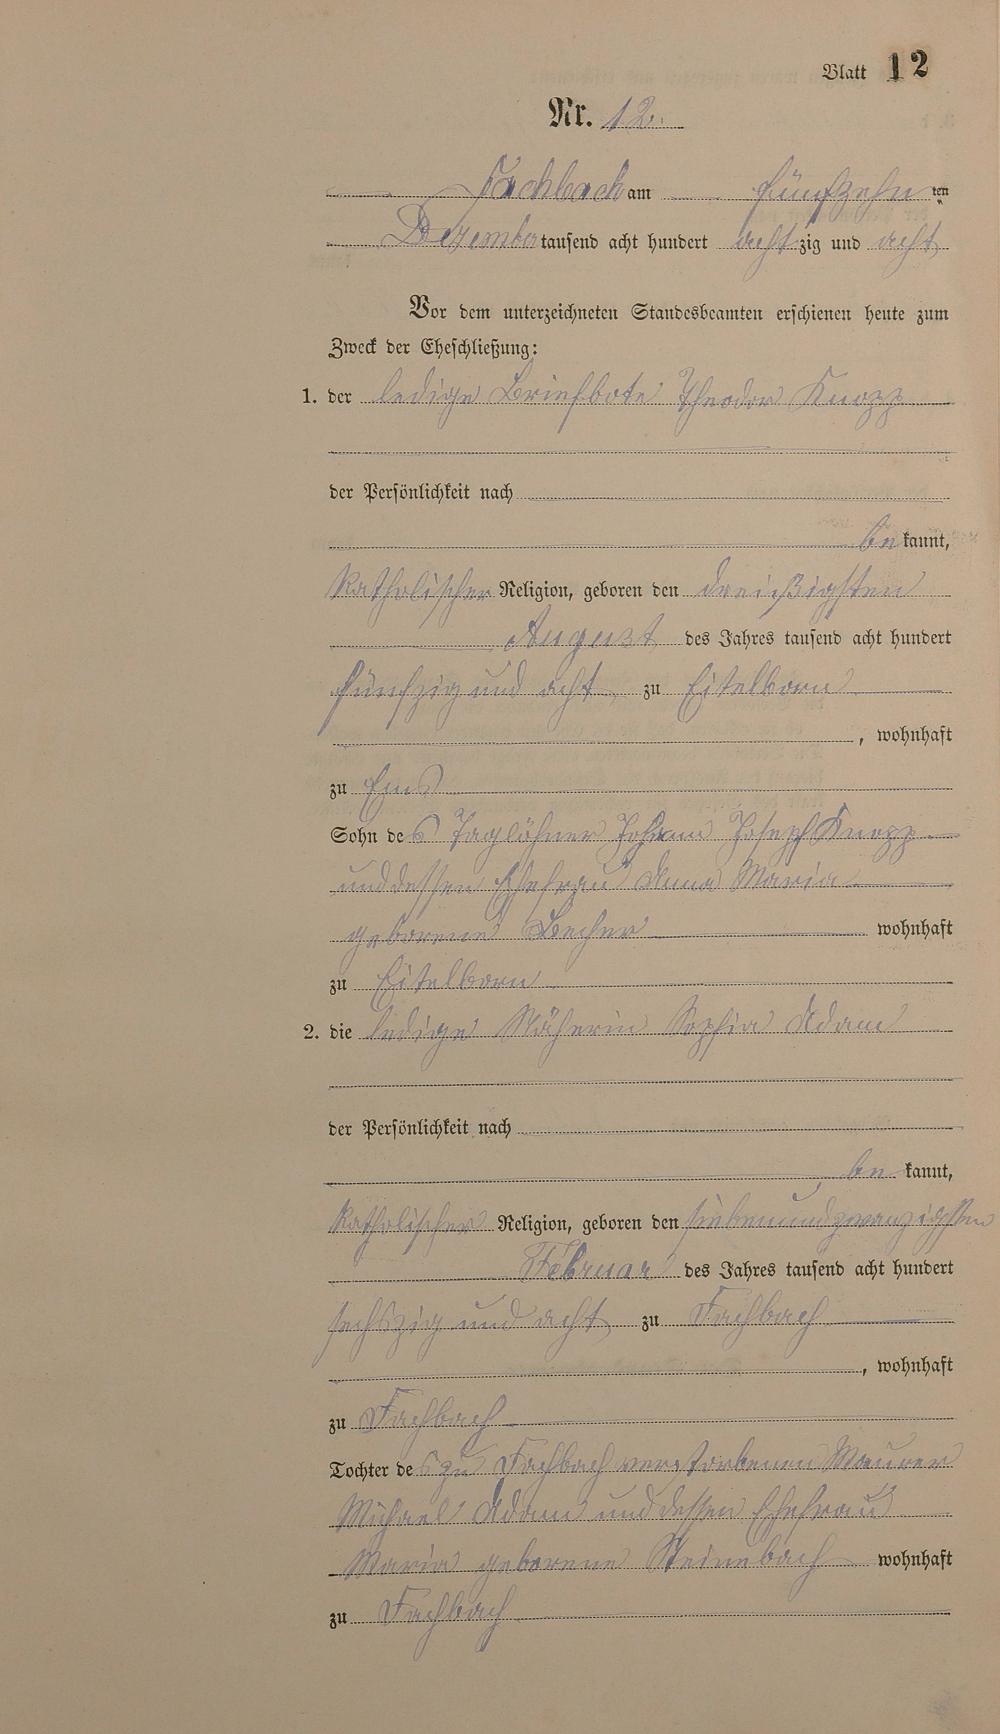 Blatt 12
Nr. 12.
Fachbach am fünfzehn ten
Dezember tausend acht hundert acht zig und acht
Vor dem unterzeichneten Standesbeamten erschienen heute zum
Zweck der Eheschließung:
1. der ledige Briefbote Theodor Knopp
der Persönlichkeit nach
be kannt,
katholischer Religion, geboren den dreißigsten
August des Jahres tausend acht hundert
fünfzig und acht zu Eitelborn
, wohnhaft
zu Ems
Sohn des Taglöhner Johann Joseph Knopp
und dessen Ehefrau Anna Maria
geborene Becher wohnhaft
zu Eitelborn
2. die ledige Näherin Sophia Adam
der Persönlichkeit nach
be kannt,
katholischer Religion, geboren den siebenundzwanzigsten
Februar des Jahres tausend acht hundert
sechszig und acht zu Fachbach
, wohnhaft
zu Fachbach
Tochter des zu Fachbach verstorbenen Maurer
Michael Adam und dessen Ehefrau
Maria geborene Steinebach wohnhaft
zu Fachbach